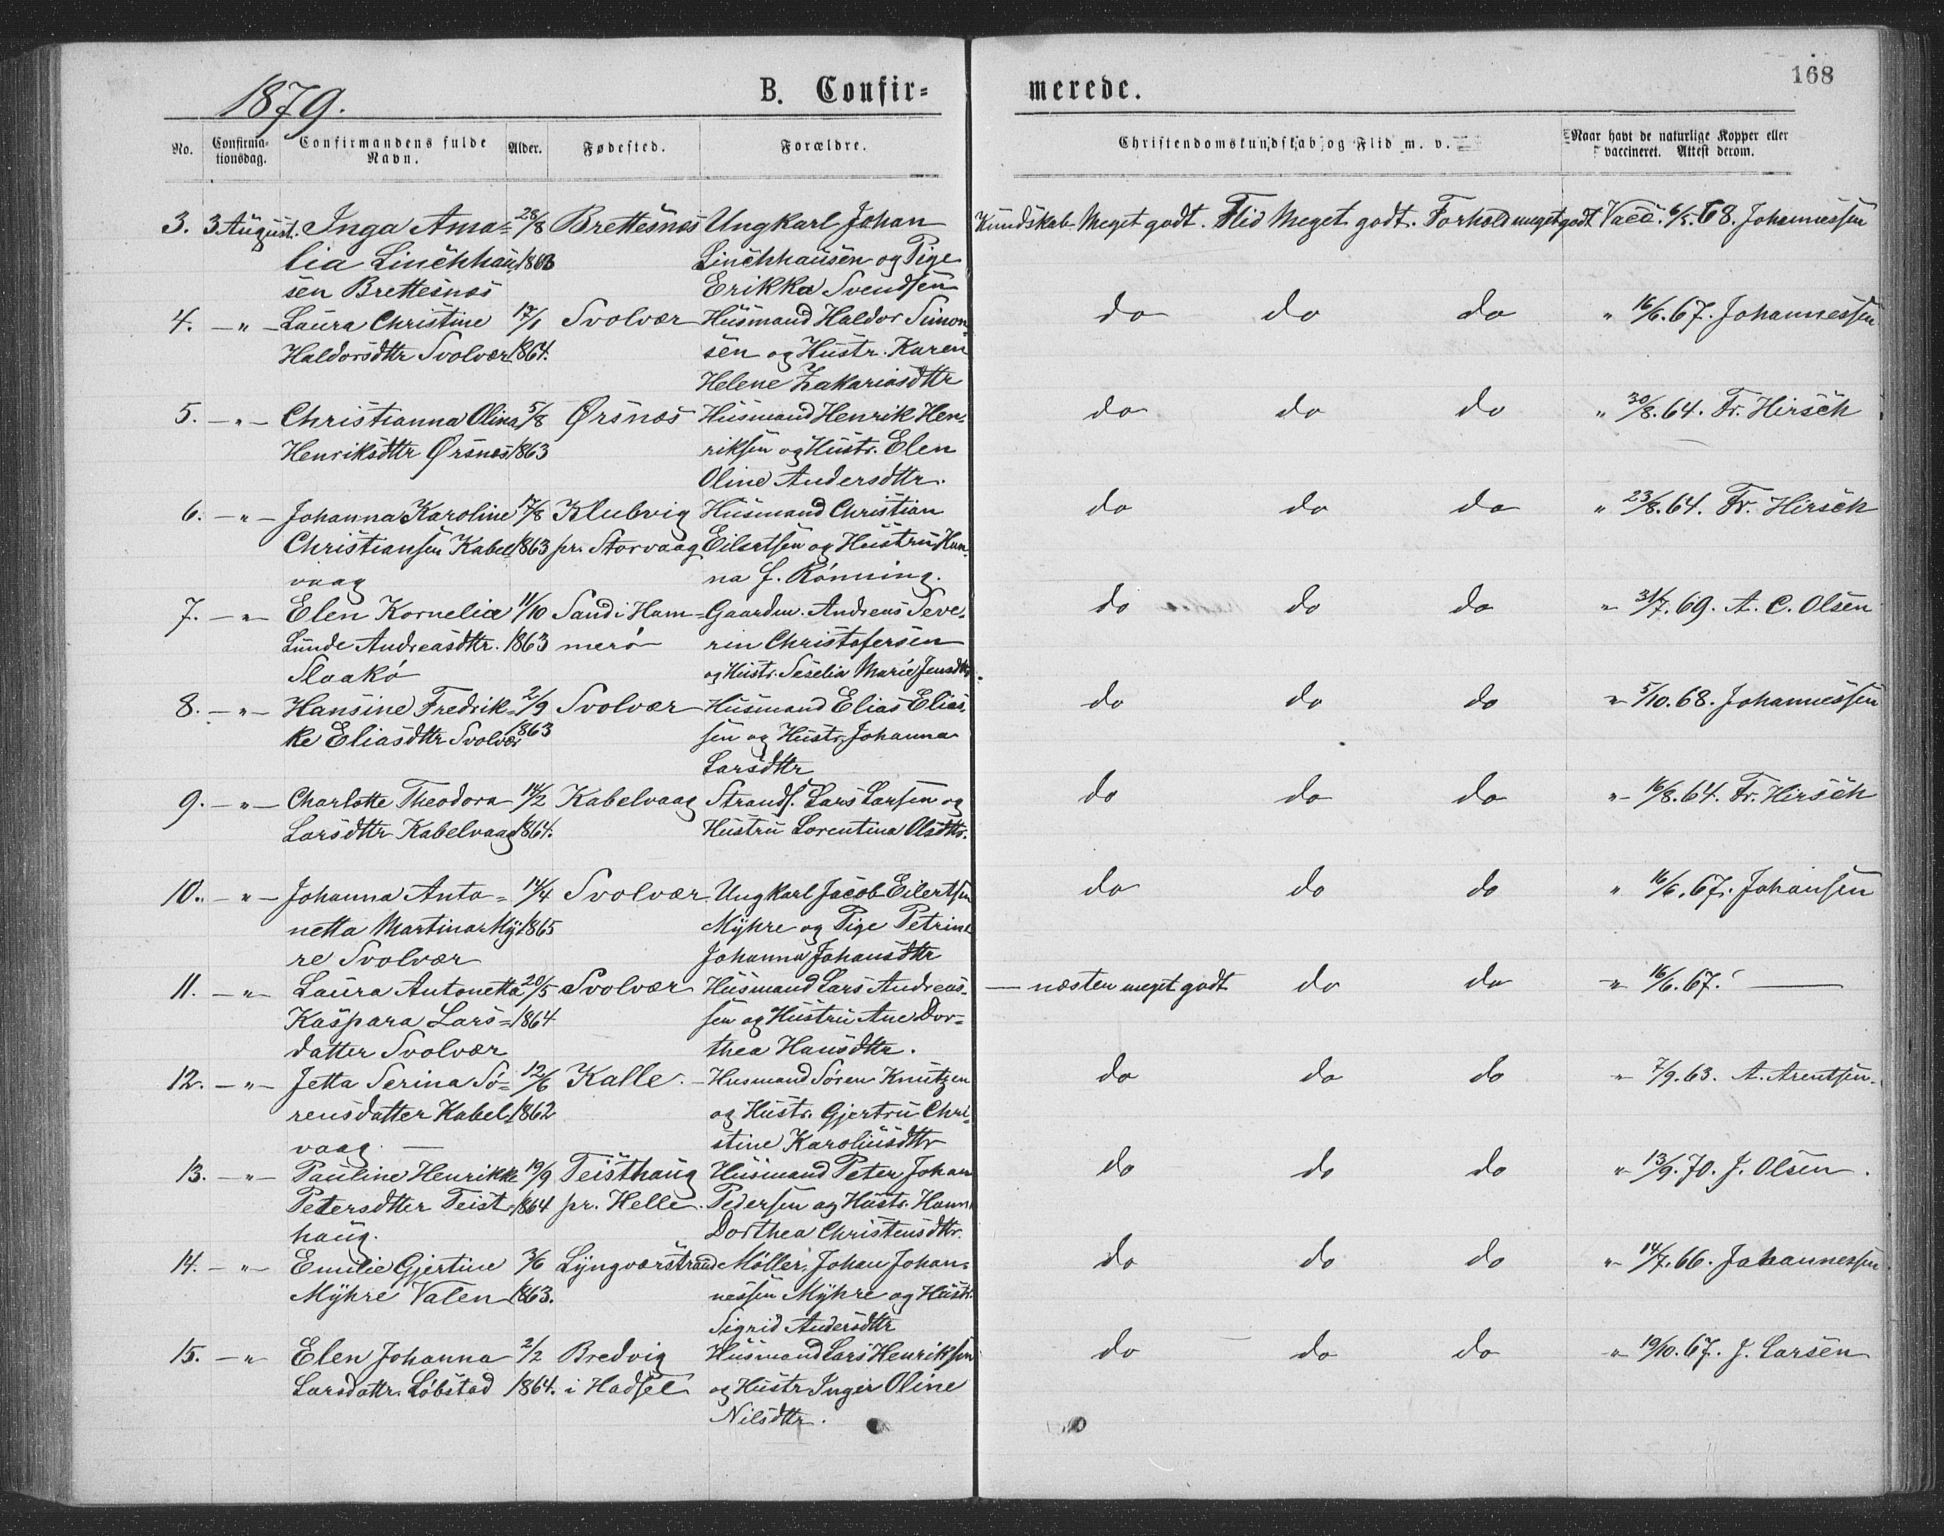 168
1879.
B. Confir=
merede.
No. Confirma-tionsdag. Confirmandens fulde Navn. Alder. Fødested. Forældre.
Christendomskundskab og Flid m. v. Naar havt de naturlige Kopper eller vaccineret. Attest derom.
3. 3 August. Inga Ama= 28/8 Brettesnæs Ungkarl Johan Kundskab Meget godt. Flid Meget godt. Forhold meget godt Vacc. 6/5. 68. Johannessen
lia Linchhau 1863 Linchhausen og Pige
sen Brettesnæs Erikka Svendsen
4. — " — Laura Christine 17/1 Svolvær Husmand Haldor Simon= do do do " 16/6. 67. Johannessen
Haldorsdttr Svolvær 1864. sen og Hustr. Karen
Helene Zakariasdttr
5. — " — Christianna Olina 5/8 Ørsnæs Husmand Henrik Hen= do do do " 30/8. 64. Fr. Hirsch
Henriksdttr Ørsnæs 1863 riksen og Hustr. Elen
Oline Andersdttr.
6. — " — Johanna Karoline 17/8 Klubvig Husmand Christian do do do " 23/8. 64. Fr. Hirsch
Christiansen Kabel 1863 pr. Storvaag Eilertsen og Hustru Han=
vaag na f. Rønning.
7. — " — Elen Kornelia 11/10 Sand i Ham= Gaardm. Andreas Seve= do do do " 31/7. 69. A. C. Olsen
Lunde Andreasdttr. 1863 merø rin Christofersen
Slaakø og Hustr. Seselia Marie Jensdttr.
8. — " — Hansine Fredrik= 2/9 Svolvær Husmand Elias Elias= do do do " 5/10. 68. Johannessen
ke Eliasdttr Svolvær 1863 sen og Hustr. Johanna
Larsdttr
9. — " — Charlotte Theodora 14/2 Kabelvaag Strands. Lars Larsen og do do do " 16/8. 64. Fr. Hirsch
Larsdttr Kabelvaag 1864. Hustru Lorentina Olsdttr.
10. — " — Johanna Anto= 14/4 Svolvær Ungkarl Jacob Eilertsen do do do " 16/6. 67. Johansen
netta Martina My 1865 Myhre og Pige Petrine
re Svolvær Johanna Johansdttr
11. — " — Laura Antonetta 20/5 Svolvær Husmand Lars Andreas= — næsten meget godt do do " 16/6. 67. —
Kaspara Lars= 1864 sen og Hustru Ane Dor=
datter Svolvær thea Hansdttr.
12. — " — Jetta Serina Sø= 12/6 Kalle. — Husmand Søren Knutzen do do do " 7/9. 63. A. Arentsen.
rensdatter Kabel 1862 og Hustr. Gjertru Chri=
vaag. — stine Karoliusdttr
13. — " — Pauline Henrikke 19/9 Teisthaug Husmand Peter Johan do do do " 13/9. 70. J. Olsen.
Petersdtter Teist 1864 pr. Helle. Pedersen og Hustr. Hanna
haug. Dorthea Christensdttr.
14. — " — Emilie Gjertine 3/6 Lyngværstrand Møller. Johan Johan= do do do " 14/7. 66. Johannessen
Myhre Valen 1863. nessen Myhre og Hustr.
Sigrid Andersdttr
15. — " Elen Johanna 2/2 Bredvig Husmand Lars Henriksen do do do " 19/10. 67. J. Larsen
Larsdattr. Løbstad 1864. i Hadsel og Hustr Inger Oline
Nilsdttr.